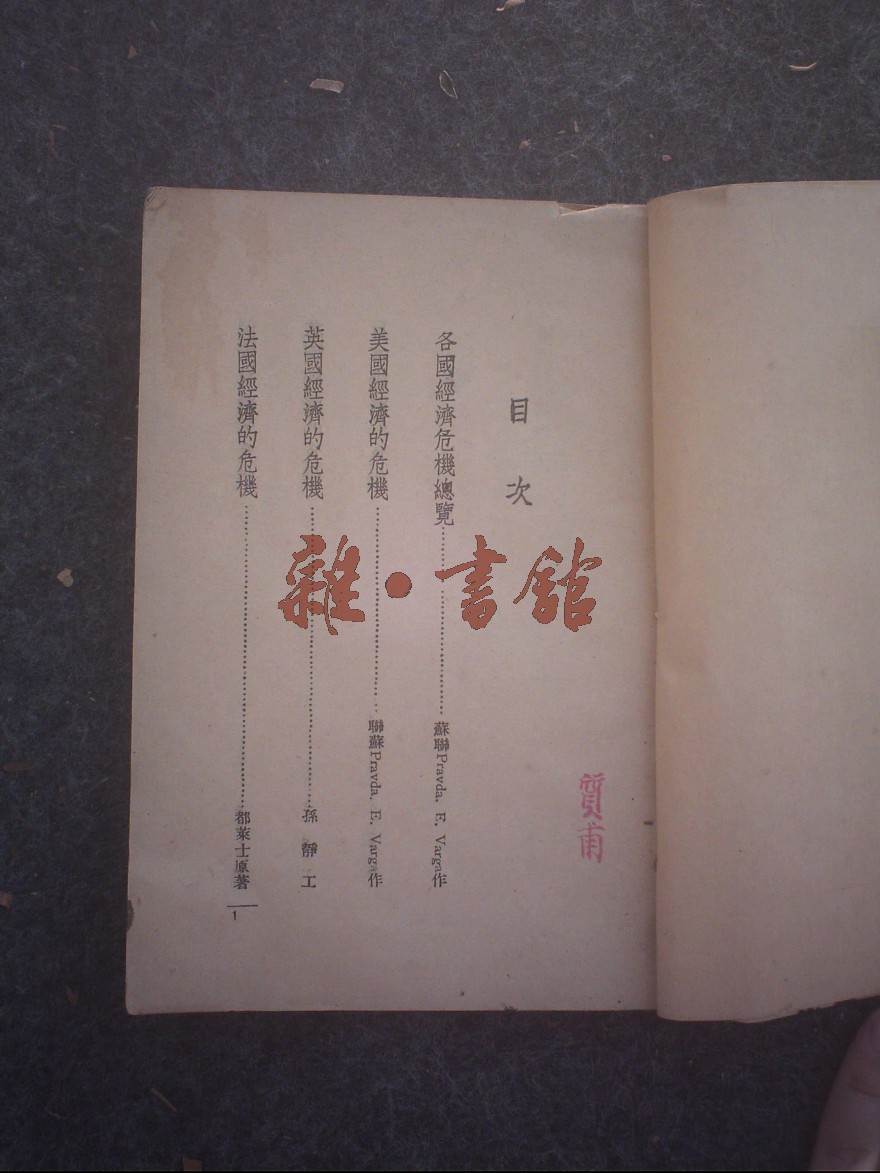 目次
各國經濟危機總覽……………………蘇聯Pravda. E. Varga作
美國經濟的危機……………………聯蘇Pravda. E. Varga作
英國經濟的危機……………………孫靜工
法國經濟的危機……………………都萊士原著
1
質甫
雜·書館